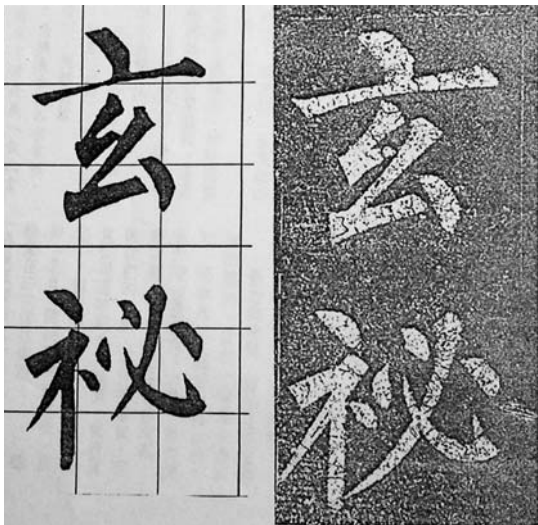 玄秘 玄秘